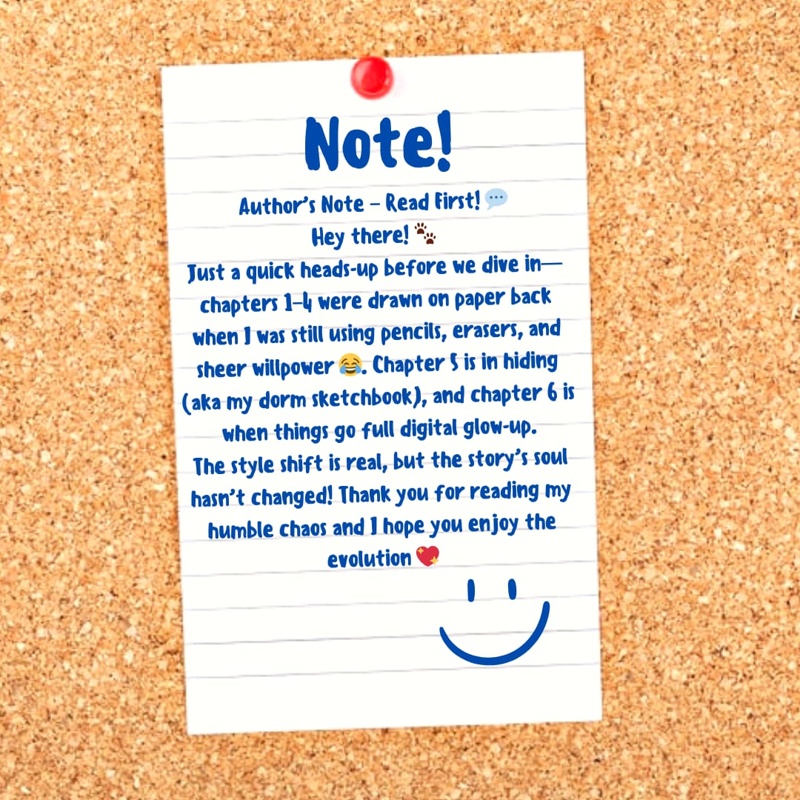 Note!
Author's Note – Read First! 💬
Hey there! 🐾
Just a quick heads-up before we dive in—
chapters 1–4 were drawn on paper back
when I was still using pencils, erasers, and
sheer willpower 😂. Chapter 5 is in hiding
(aka my dorm sketchbook), and chapter 6 is
when things go full digital glow-up.
The style shift is real, but the story's soul
hasn't changed! Thank you for reading my
humble chaos and I hope you enjoy the
evolution 💖